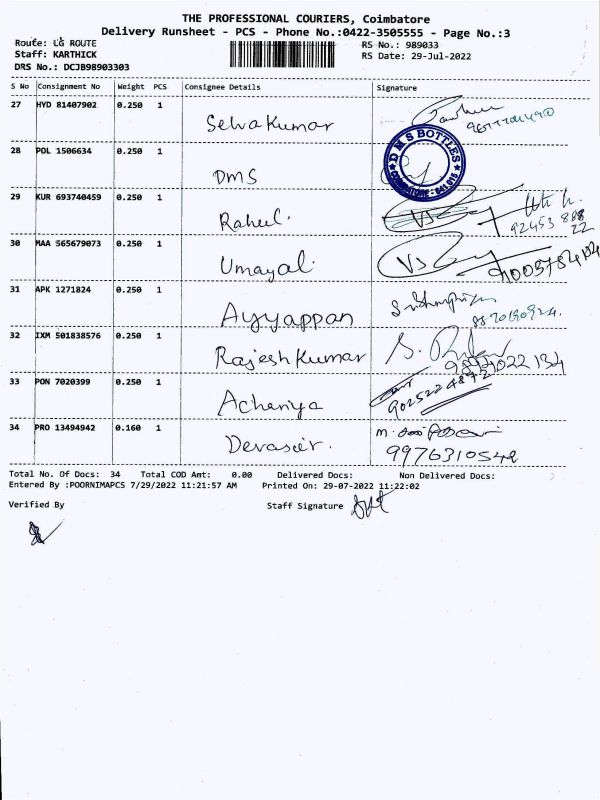 THE PROFESSIONAL COURIERS, Coimbatore
Delivery Runsheet - PCS - Phone No.:0422-3505555 - Page No.:3
Route: LG ROUTE
RS No.: 989033
Staff: KARTHICK
RS Date: 29-Jul-2022
DRS No.: DCJB98903303
S No Consignment No Weight PCS Consignee Details Signature
27 HYD 81407902 0.250 1 Selvakumar
28 POL 1506634 0.250 1 DMS
DMS BOTTLES
COIMBATORE - 641 015
29 KUR 693740459 0.250 1 Rahul. 92453 888 22
30 MAA 565679073 0.250 1 Umayal
31 APK 1271824 0.250 1 Ayyappan
32 IXM 501838576 0.250 1 Rajesh Kumar
33 PON 7020399 0.250 1 Achariya 9025224872
34 PRO 13494942 0.160 1 9976310542
Total No. Of Docs: 34 Total COD Amt: 0.00 Delivered Docs: Non Delivered Docs:
Entered By :POORNIMAPCS 7/29/2022 11:21:57 AM Printed On: 29-07-2022 11:22:02
Verified By Staff Signature